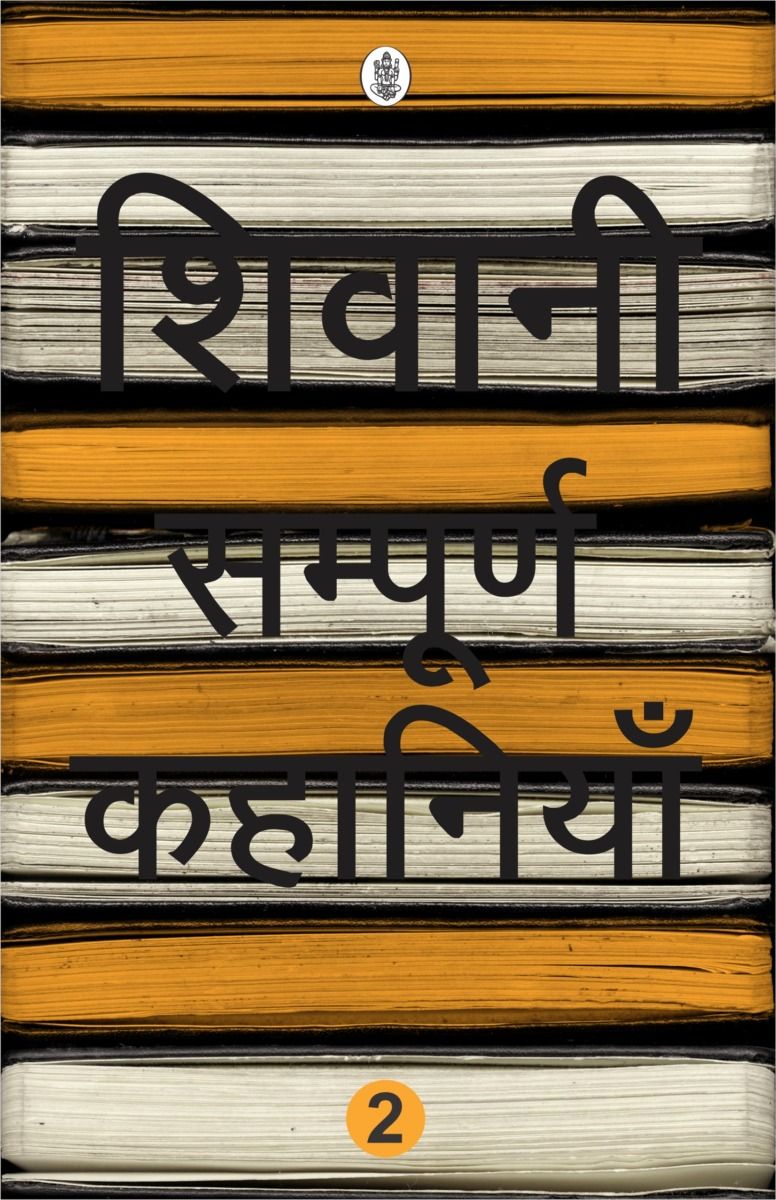 शिवानी
सम्पूर्ण
कहानियाँ
2